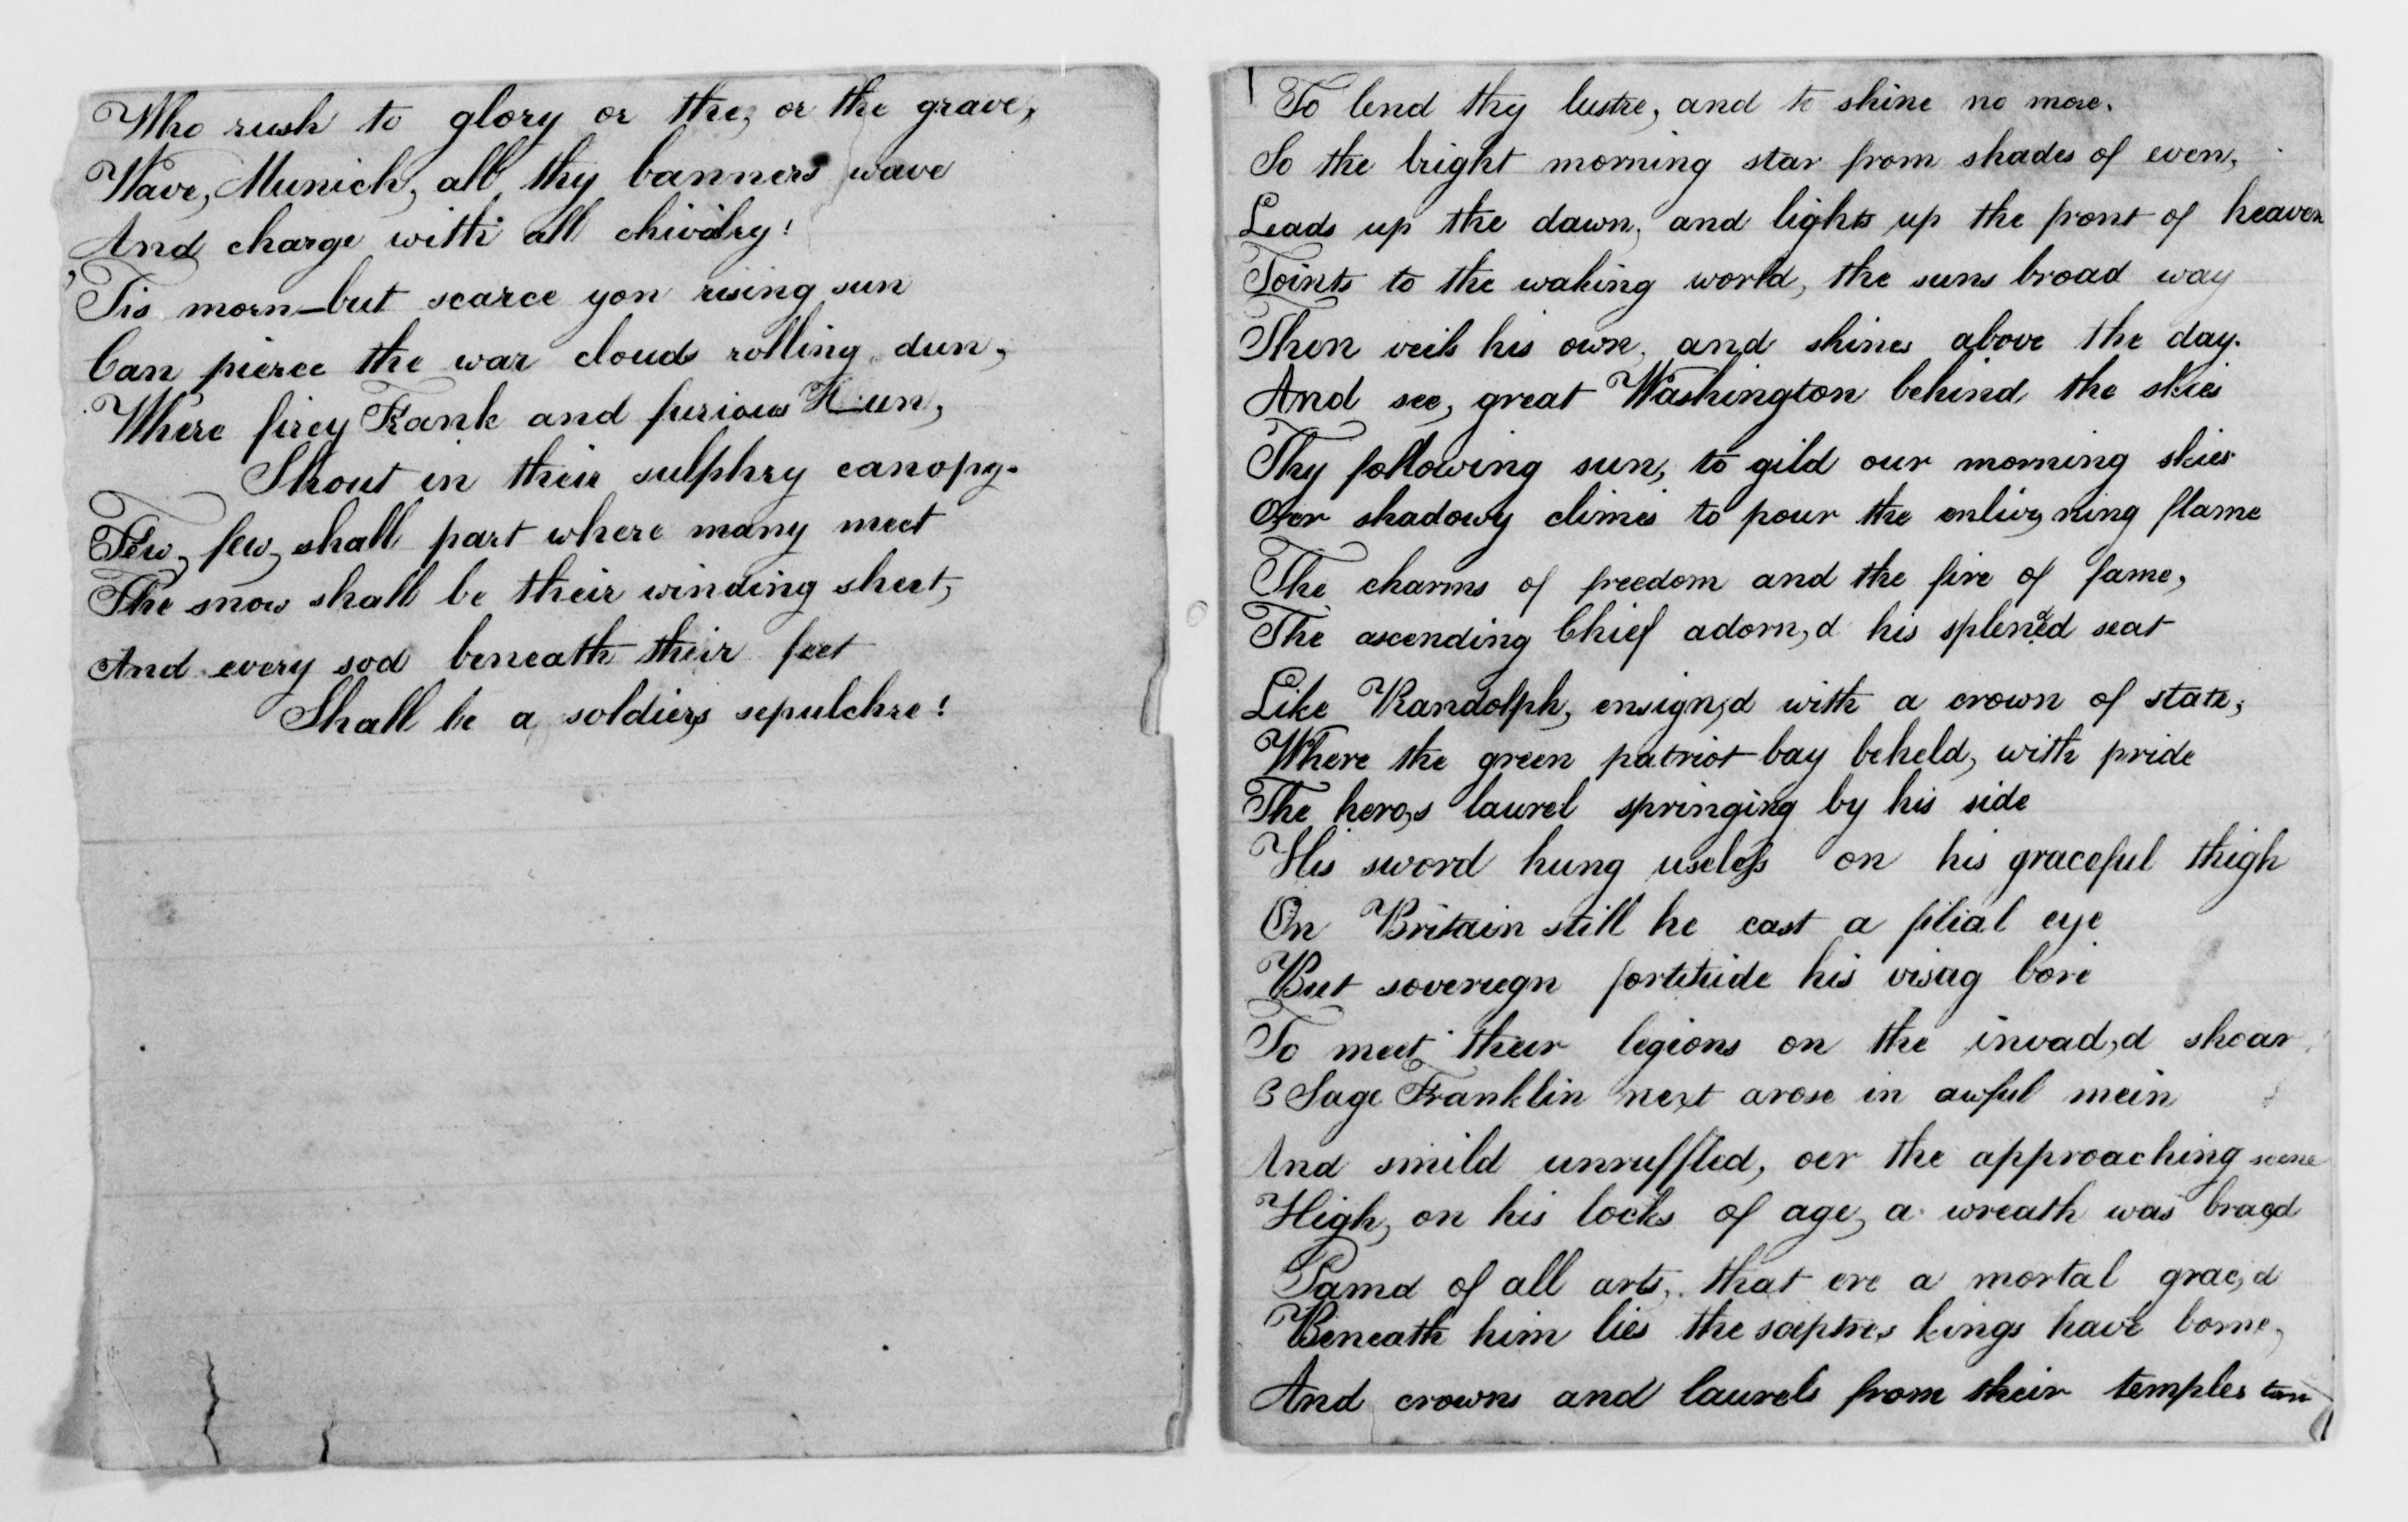 Who rush to glory or the, or the grave,
Wave, Munich, all thy banners wave
And charge with all chivalry!
'Tis morn—but scarce yon rising sun
Can pierce the war clouds rolling dun,
Where firey Frank and furious Hun,
Shout in their sulphry canopy.
Few, few, shall part where many meet
The snow shall be their winding sheet,
And every sod beneath their feet
Shall be a soldiers sepulchre!
To lend thy lustre, and to shine no more.
So the bright morning star from shades of even,
Leads up the dawn, and lights up the front of heaven
Points to the waking world, the suns broad way
Then veils his own, and shines above the day.
And see, great Washington behind the skies
Thy following sun, to gild our morning skies
Oer shadowy climes to pour the enliv,ning flame
The charms of freedom and the fire of fame,
The ascending Chief adorn,d his splended seat
Like Randolph, ensign,d with a crown of state,
Where the green patriot bay beheld, with pride
The hero,s laurel springing by his side
His sword hung useless on his graceful thigh
On Britain still he cast a filial eye
But sovereign fortitude his visag bore
To meet their legions on the invad,d shoar
3 Sage Franklin next arose in awful mein
And smild unruffled, oer the approaching scene
High, on his locks of age, a wreath was bracd
Pamd of all arts, that ere a mortal grac,d
Beneath him lies the sceptres kings have borne,
And crowns and laurels from their temples torn